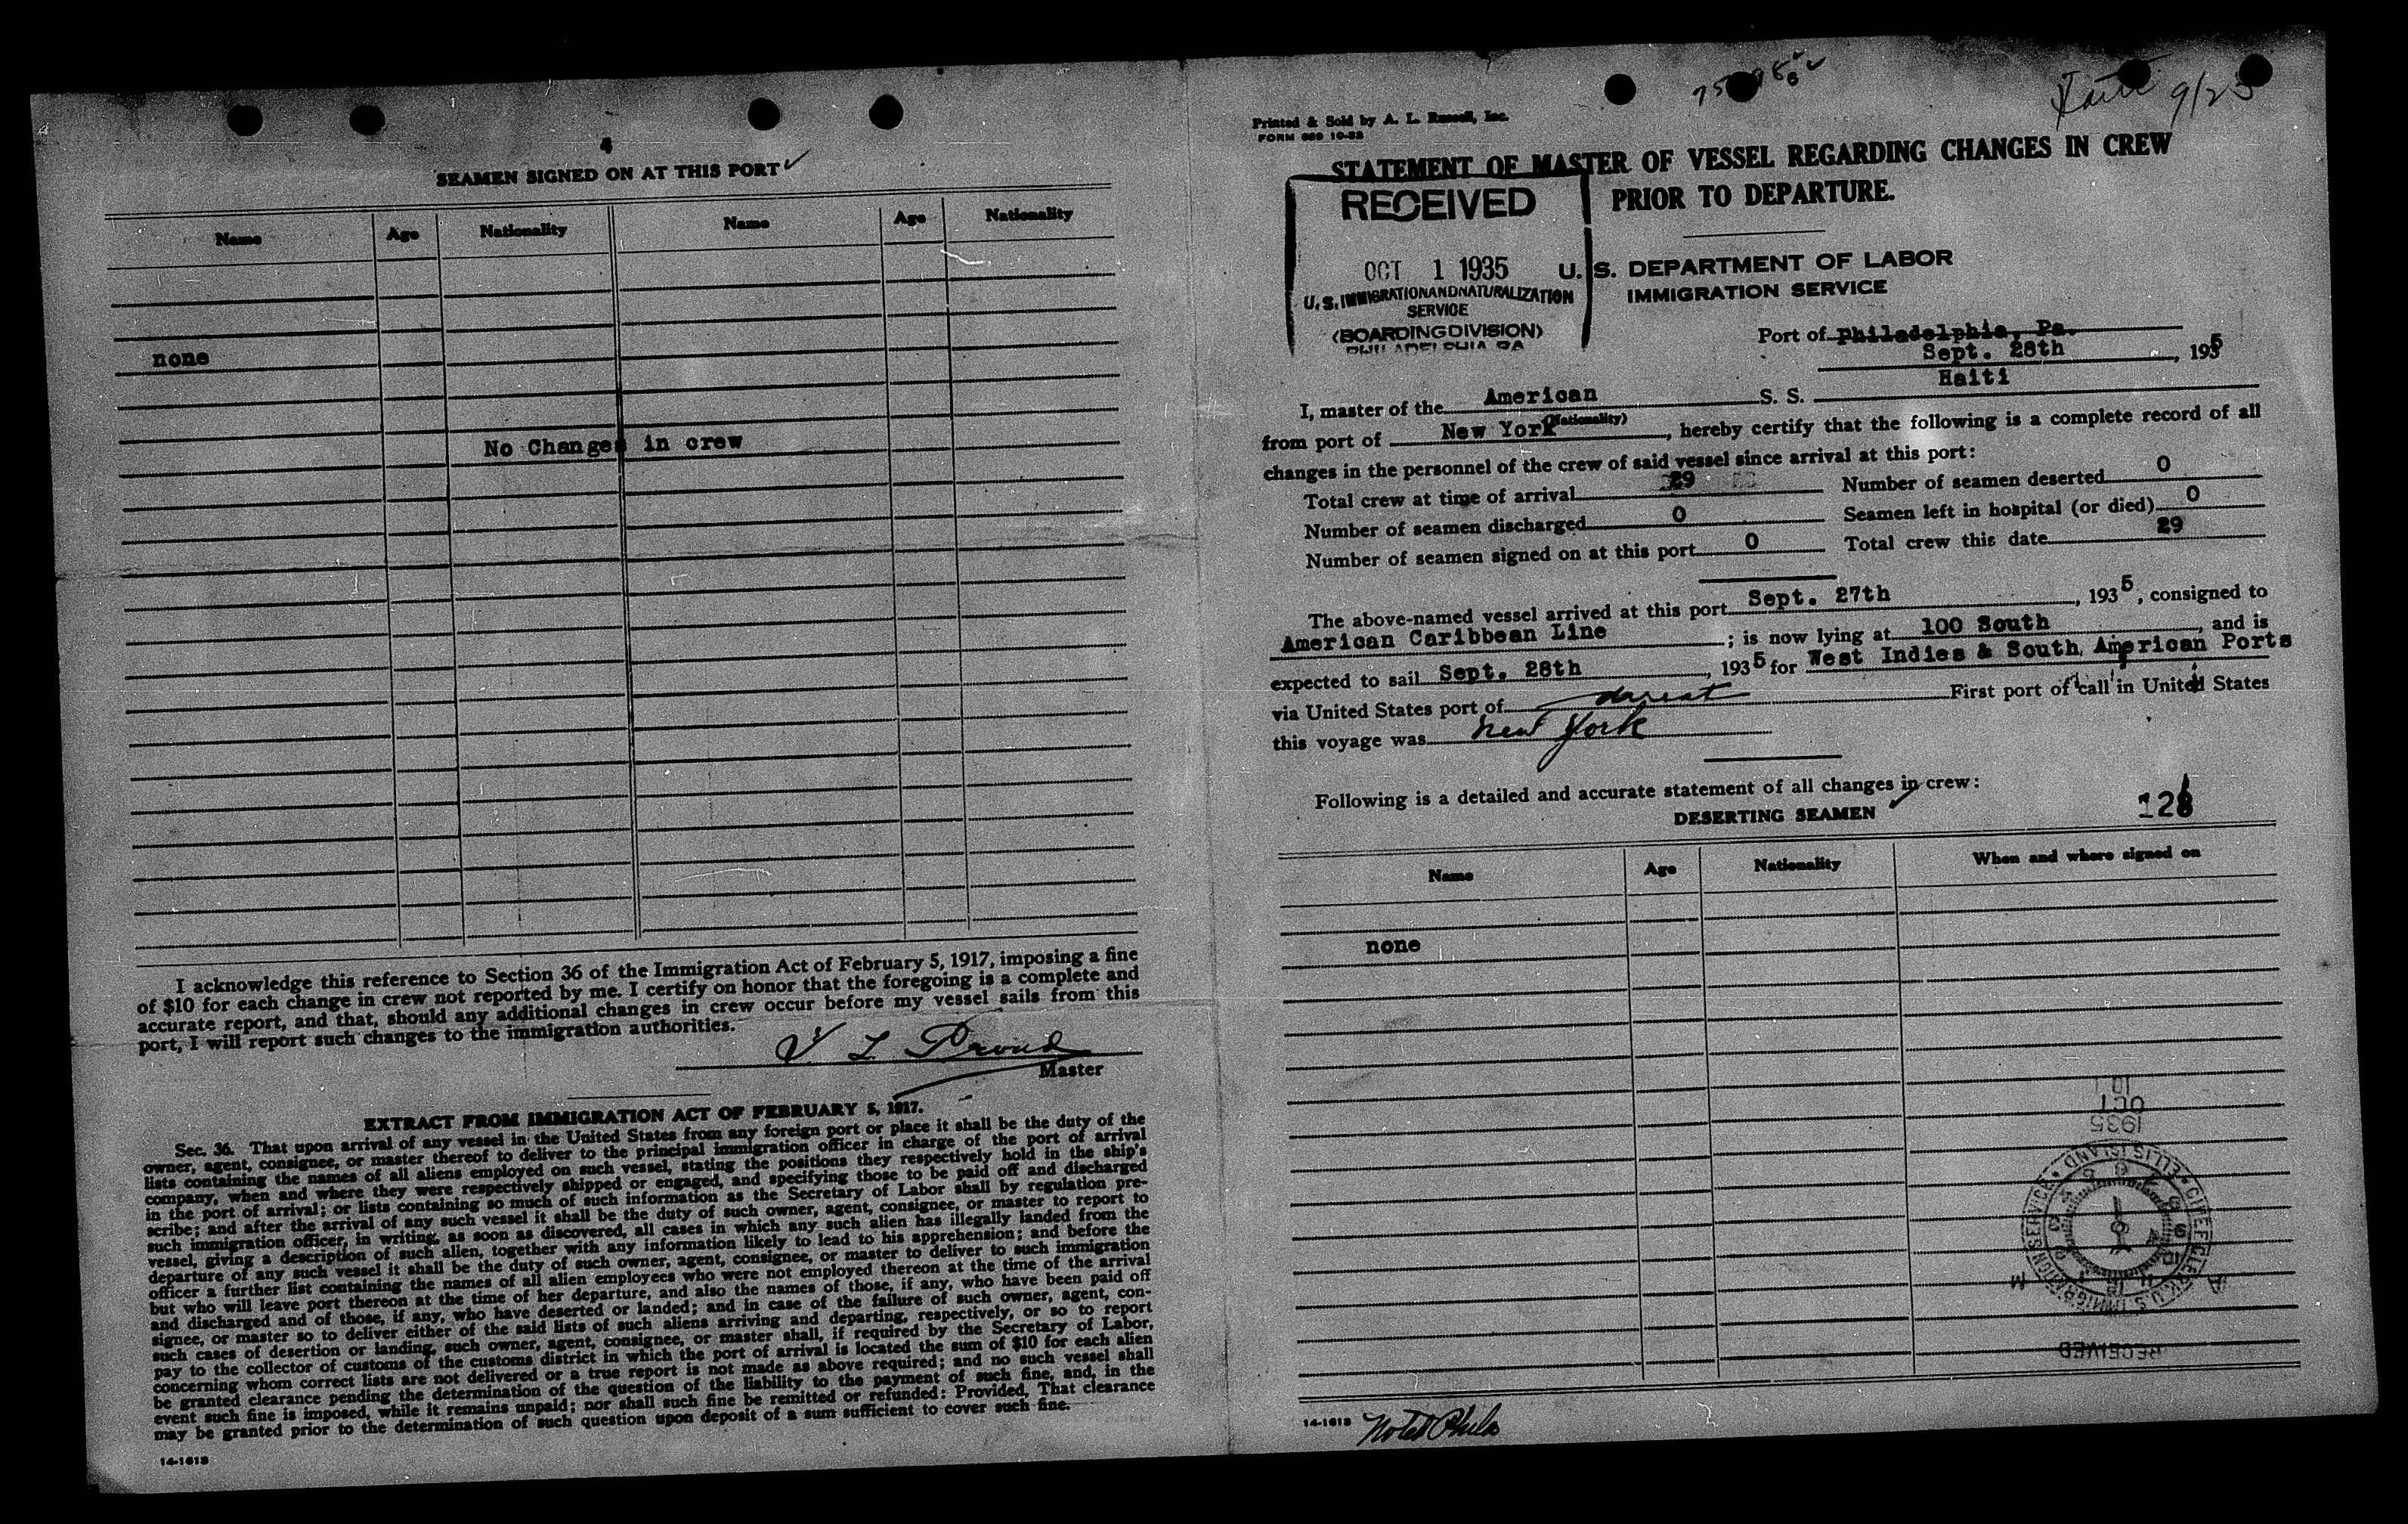 4
SEAMEN SIGNED ON AT THIS PORT
Name Age Nationality Name Age Nationality
none
No Changes in crew
I acknowledge this reference to Section 36 of the Immigration Act of February 5, 1917, imposing a fine
of $10 for each change in crew not reported by me. I certify on honor that the foregoing is a complete and
accurate report, and that, should any additional changes in crew occur before my vessel sails from this
port, I will report such changes to the immigration authorities.
Master
EXTRACT FROM IMMIGRATION ACT OF FEBRUARY 5, 1917.
Sec. 36. That upon arrival of any vessel in the United States from any foreign port or place it shall be the duty of the
owner, agent, consignee, or master thereof to deliver to the principal immigration officer in charge of the port of arrival
lists containing the names of all aliens employed on such vessel, stating the positions they respectively hold in the ship's
company, when and where they were respectively shipped or engaged, and specifying those to be paid off and discharged
in the port of arrival; or lists containing so much of such information as the Secretary of Labor shall by regulation pre-
scribe; and after the arrival of any such vessel it shall be the duty of such owner, agent, consignee, or master to report to
such immigration officer, in writing, as soon as discovered, all cases in which any such alien has illegally landed from the
vessel, giving a description of such alien, together with any information likely to lead to his apprehension; and before the
departure of any such vessel it shall be the duty of such owner, agent, consignee, or master to deliver to such immigration
officer a further list containing the names of all alien employees who were not employed thereon at the time of the arrival
but who will leave port thereon at the time of her departure, and also the names of those, if any, who have been paid off
and discharged and of those, if any, who have deserted or landed; and in case of the failure of such owner, agent, con-
signee, or master so to deliver either of the said lists of such aliens arriving and departing, respectively, or so to report
such cases of desertion or landing, such owner, agent, consignee, or master shall, if required by the Secretary of Labor,
pay to the collector of customs of the customs district in which the port of arrival is located the sum of $10 for each alien
concerning whom correct lists are not delivered or a true report is not made as above required; and no such vessel shall
be granted clearance pending the determination of the question of the liability to the payment of such fine, and, in the
event such fine is imposed, while it remains unpaid; nor shall such fine be remitted or refunded: Provided, That clearance
may be granted prior to the determination of such question upon deposit of a sum sufficient to cover such fine.
14-1613
9/25
Printed & Sold by A. L. Russell, Inc.
FORM 689 10-32
STATEMENT OF MASTER OF VESSEL REGARDING CHANGES IN CREW
PRIOR TO DEPARTURE.
RECEIVED
OCT 1 1935
U. S. IMMIGRATION AND NATURALIZATION
SERVICE
(BOARDING DIVISION)
PHILADELPHIA PA
U. S. DEPARTMENT OF LABOR
IMMIGRATION SERVICE
Port of Philadelphia, Pa.
Sept. 28th, 1935
I, master of the American S. S. Haiti
(Nationality)
from port of New York, hereby certify that the following is a complete record of all
changes in the personnel of the crew of said vessel since arrival at this port:
Total crew at time of arrival 29 Number of seamen deserted 0
Number of seamen discharged 0 Seamen left in hospital (or died) 0
Number of seamen signed on at this port 0 Total crew this date 29
The above-named vessel arrived at this port Sept. 27th, 1935, consigned to
American Caribbean Line; is now lying at 100 South, and is
expected to sail Sept. 28th, 1935 for West Indies & South American Ports
via United States port of direct First port of call in United States
this voyage was New York
Following is a detailed and accurate statement of all changes in crew:
DESERTING SEAMEN
128
Name Age Nationality When and where signed on
none
RECEIVED
CHIEF CLERK U.S. IMMIGRATION SERVICE ELLIS ISLAND
1935
OCT
10
14-1613
Noted Phila